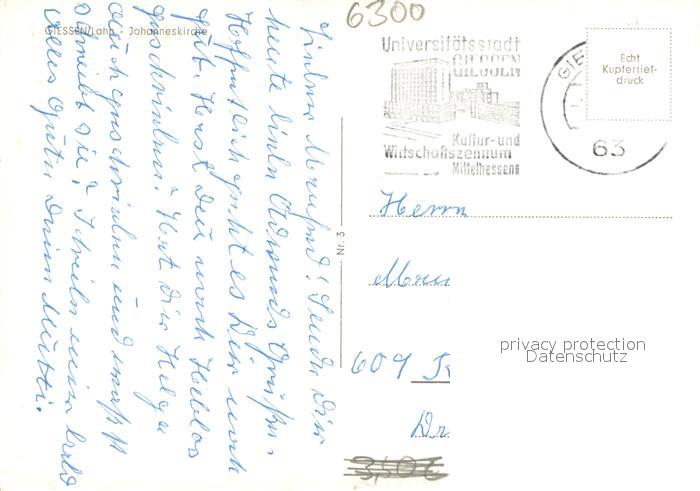 GIESSEN/Lahn - Johanneskirche
Lieber Manfred! Sende Dir
heute liebe Grüße.
Hoffentlich geht es Dir noch
gut. Hast Du nach
geschrieben? Hat dir Helga
auch geschrieben und was
schreibt sie? Schreib mir bald
alles Gute Deine Mutti.
6300
Universitätsstadt
GIESSEN
Kultur- und
Wirtschaftszentrum
Mittelhessens
GIE
63
Echt
Kupfertief-
druck
Nr. 3
Herrn
609
privacy protection
Datenschutz
3,50€